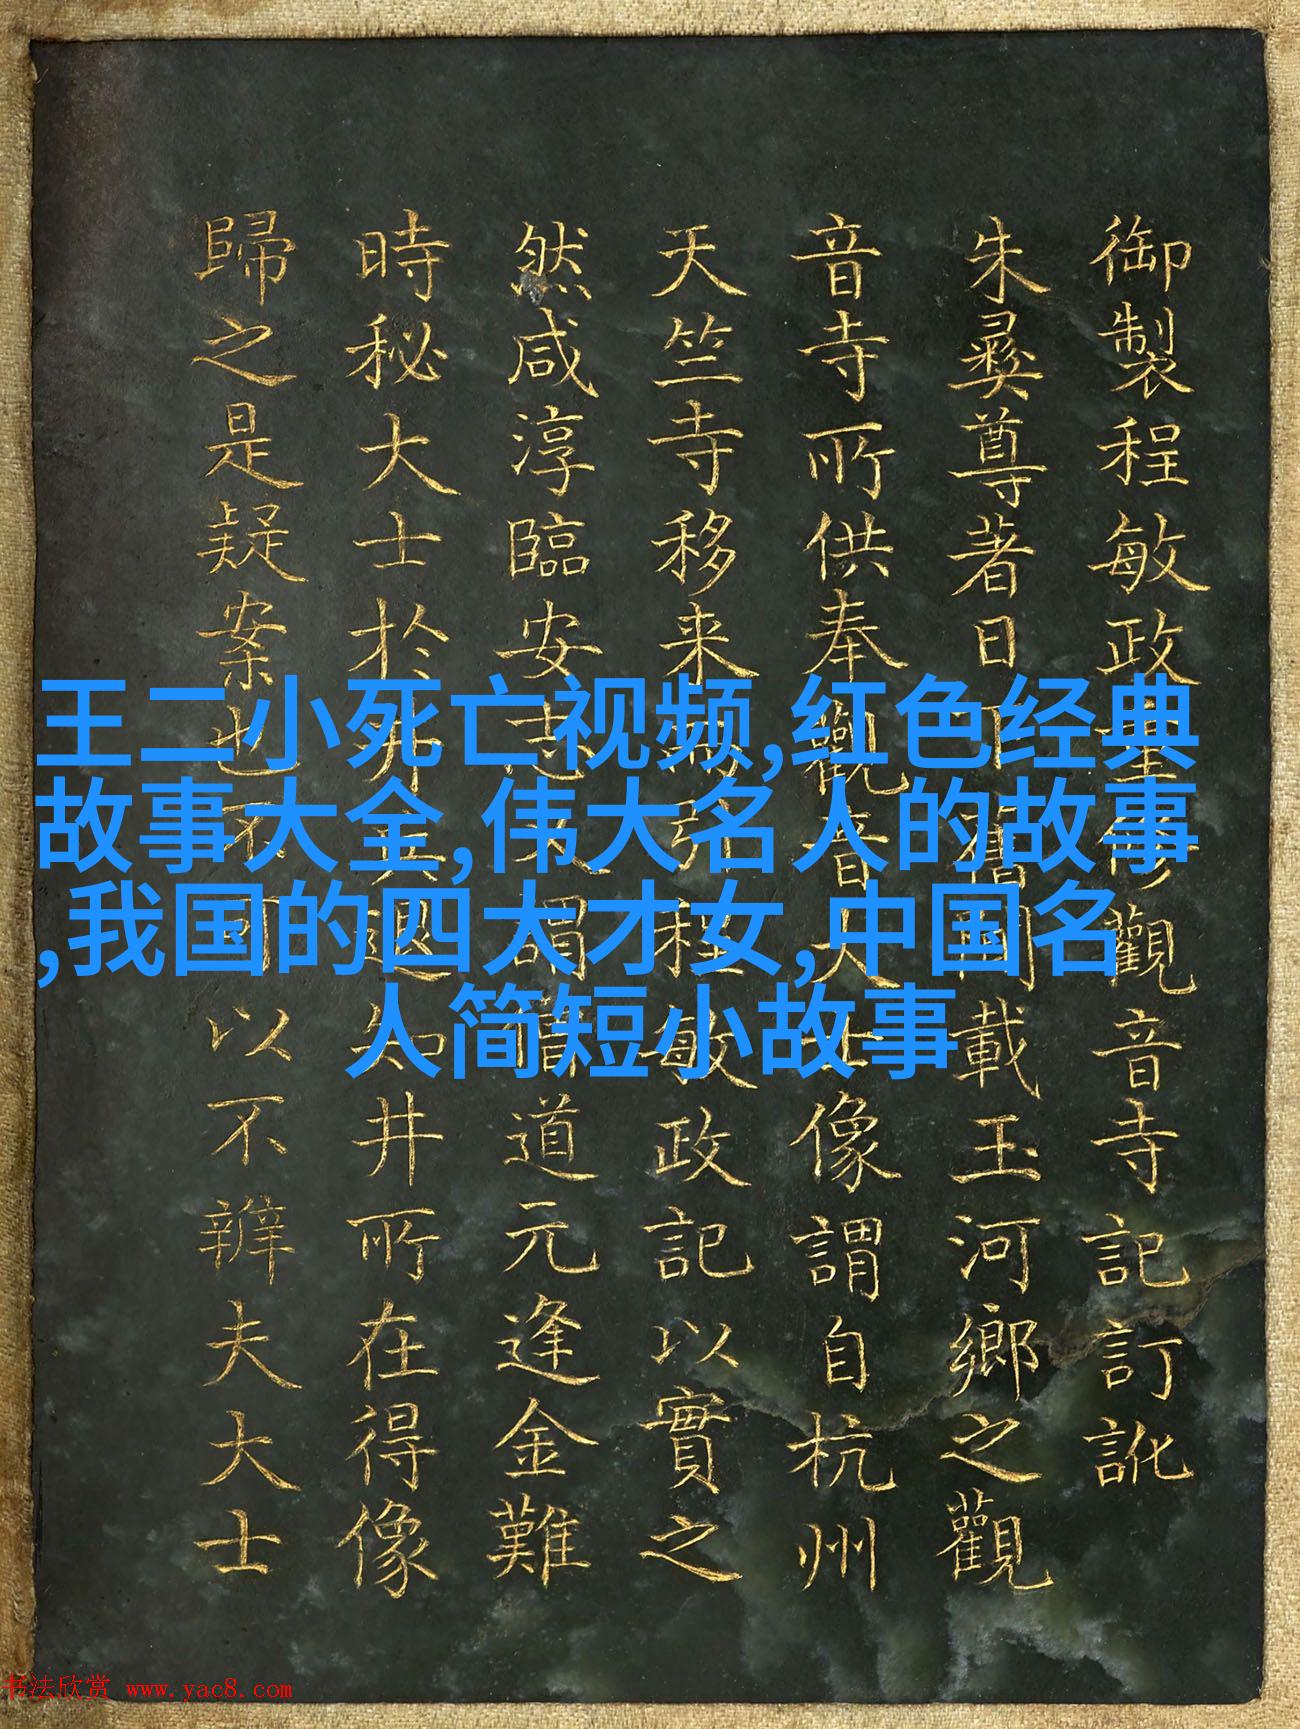 御製程敏政重修觀音寺記訂訛
朱彝尊著日下舊聞載玉河鄉之觀
音寺所供奉觀音大士像謂自杭州
天竺寺移来故引程敏政記以實之
然咸淳臨安志又謂僧道元逢金難
時秘大士於井兵退知井所在得像
歸之是疑案也不可以不辨夫大士
王二小死亡视频,红色经典
故事大全,伟大名人的故事
,我国的四大才女,中国名
人简短小故事
书法欣赏 www.yac8.com